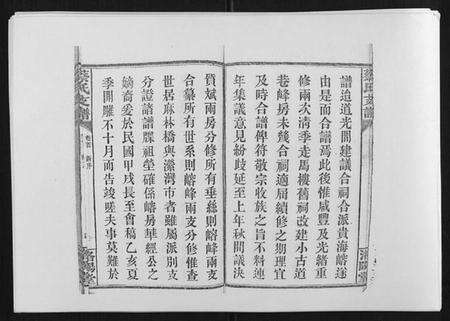 譜迨道光間建議合祠合派貴海嵱逢
由是而合譜焉此後惟咸豐及光緒重
修兩次清季走馬樓舊祠改建小古道
巷峰房未幾合祠適屆續修之期理宜
及時合譜俾符敬宗收族之旨不料連
年集議意見紛歧延至上年秋間議決
質斌兩房分修所有垂絲則嵱峰兩支
合纂所有世系則嵱峰兩支分修惟查
世居麻林橋與灤灣市者雖屬派別支
分證諸譜牒祖塋確係嵱房華經公之
嫡裔爰於民國甲戌長至會稿乙亥夏
季開雕不十月而告竣雖夫事莫難於
蔡氏支譜
卷首
新序
濟陽堂